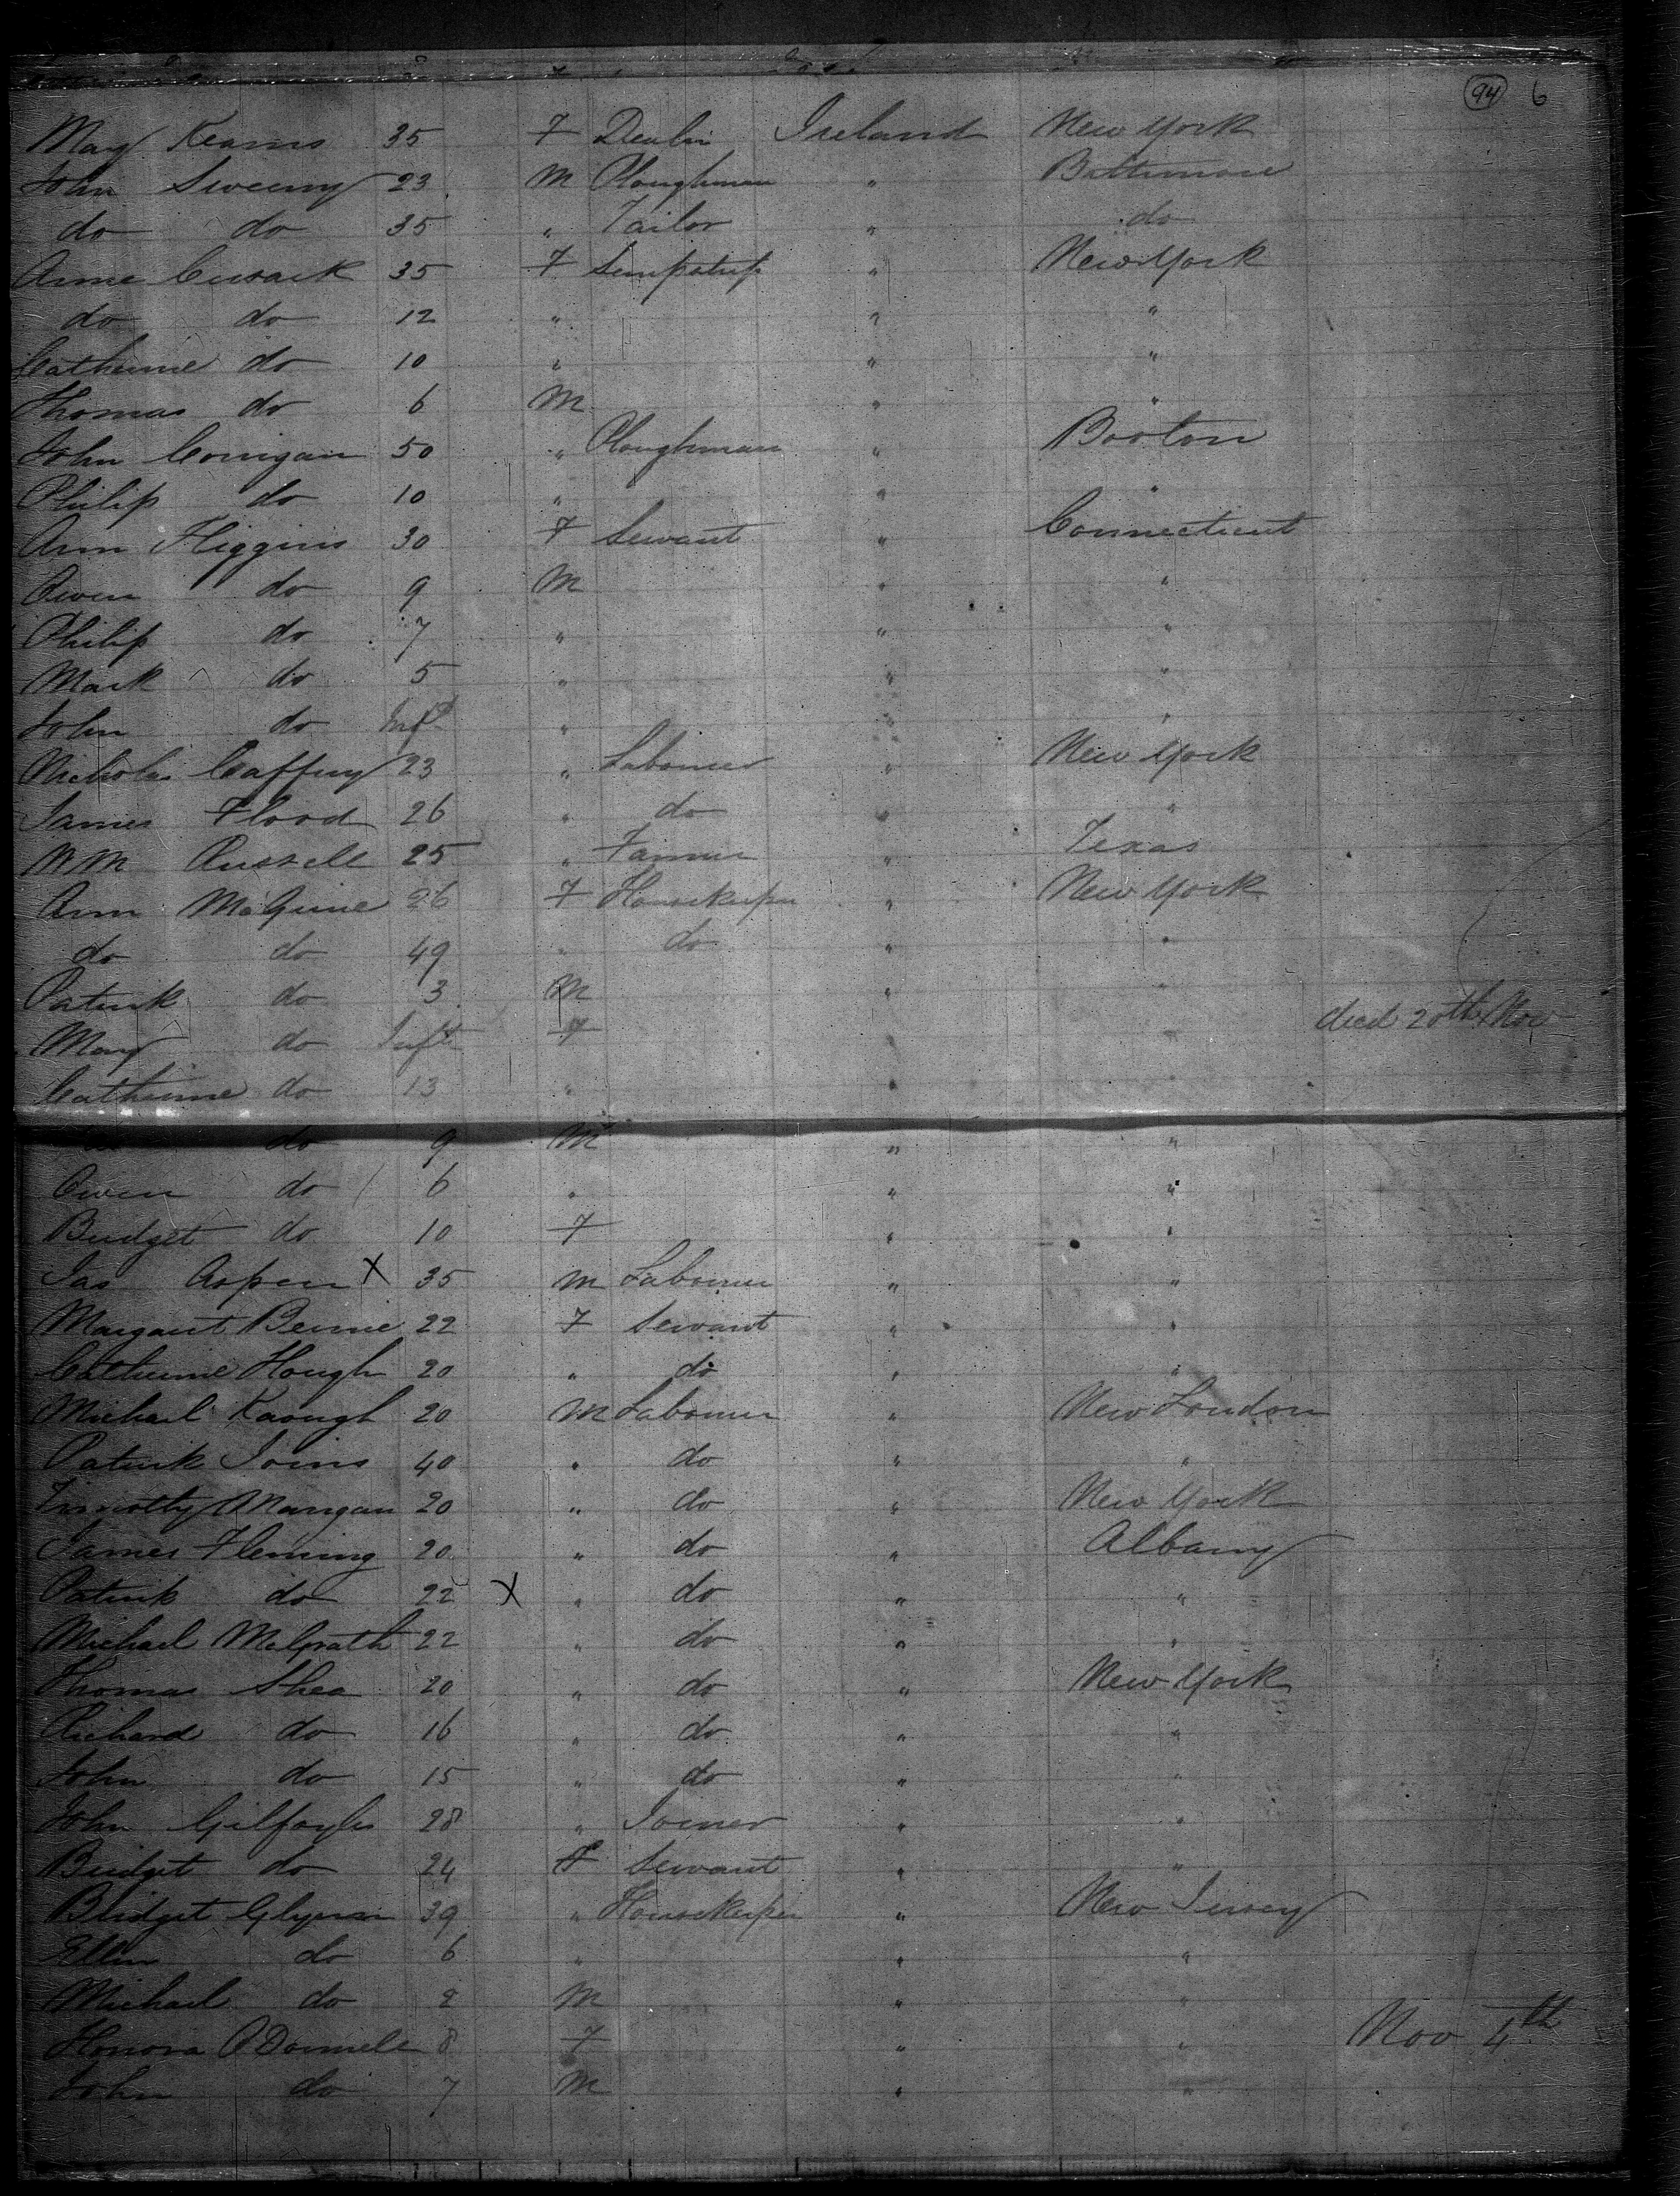 94 6
Mary Kearns 35 F Dealer Ireland New York
John Sweeny 23 M Ploughman " Baltimore
do do 35 " Tailor " do
Anne Cusack 35 F Sempstress " New York
do do 12 " " "
Catherine do 10 " " "
Thomas do 6 M " "
John Corrigan 50 " Ploughman " Boston
Philip do 10 " " "
Ann Higgins 30 F Servant " Connecticut
Owen do 9 M " "
Philip do 7 " " "
Mark do 5 " " "
John do Inft " " "
Nicholas Caffrey 23 " Labourer " New York
James Flood 26 " do " "
Wm Russell 25 " Farmer " Texas
Ann McGuire 26 F Housekeeper " New York
do do 49 " do " "
Patrick do 3 M " "
Mary do Inft F " " died 20th Nov
Catherine do 13 " " "
do 9 M " "
Owen do 6 " " "
Bridget do 10 F " "
Jas Aspen X 35 M Labourer " "
Margaret Beirne 22 F Servant " "
Catherine Hough 20 " do " "
Michael Keough 20 M Labourer " New London
Patrick Joins 40 " do " "
Timothy Mangan 20 " do " New York
James Fleming 20 " do " Albany
Patrick do 22 X " do " "
Michael McGrath 22 " do " "
Thomas Shea 20 " do " New York
Richard do 16 " do " "
John do 15 " do " "
John Gilfoyle 28 " Joiner " "
Bridget do 24 F Servant " "
Bridget Glynn 39 " Housekeeper " New Jersey
Ellen do 6 " " "
Michael do 2 M " "
Honora O'Donnell 8 F " " Nov 4th
John do 7 M " "